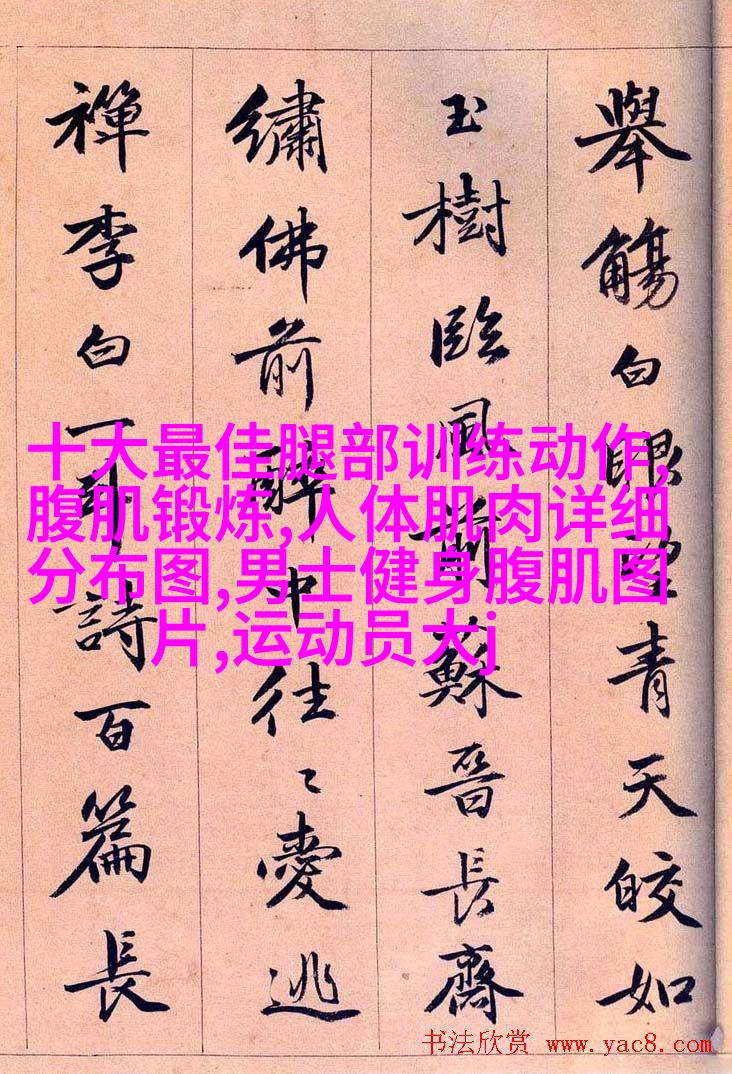 舉觴白眼望青天皎如
玉樹臨風前蘇晉長齋
繡佛前醉中往〻愛逃
禪李白一斗詩百篇長
十大最佳腿部训练动作,
腹肌锻炼,人体肌肉详细
分布图,男士健身腹肌图
片,运动员大j
书法欣赏 www.yac8.com